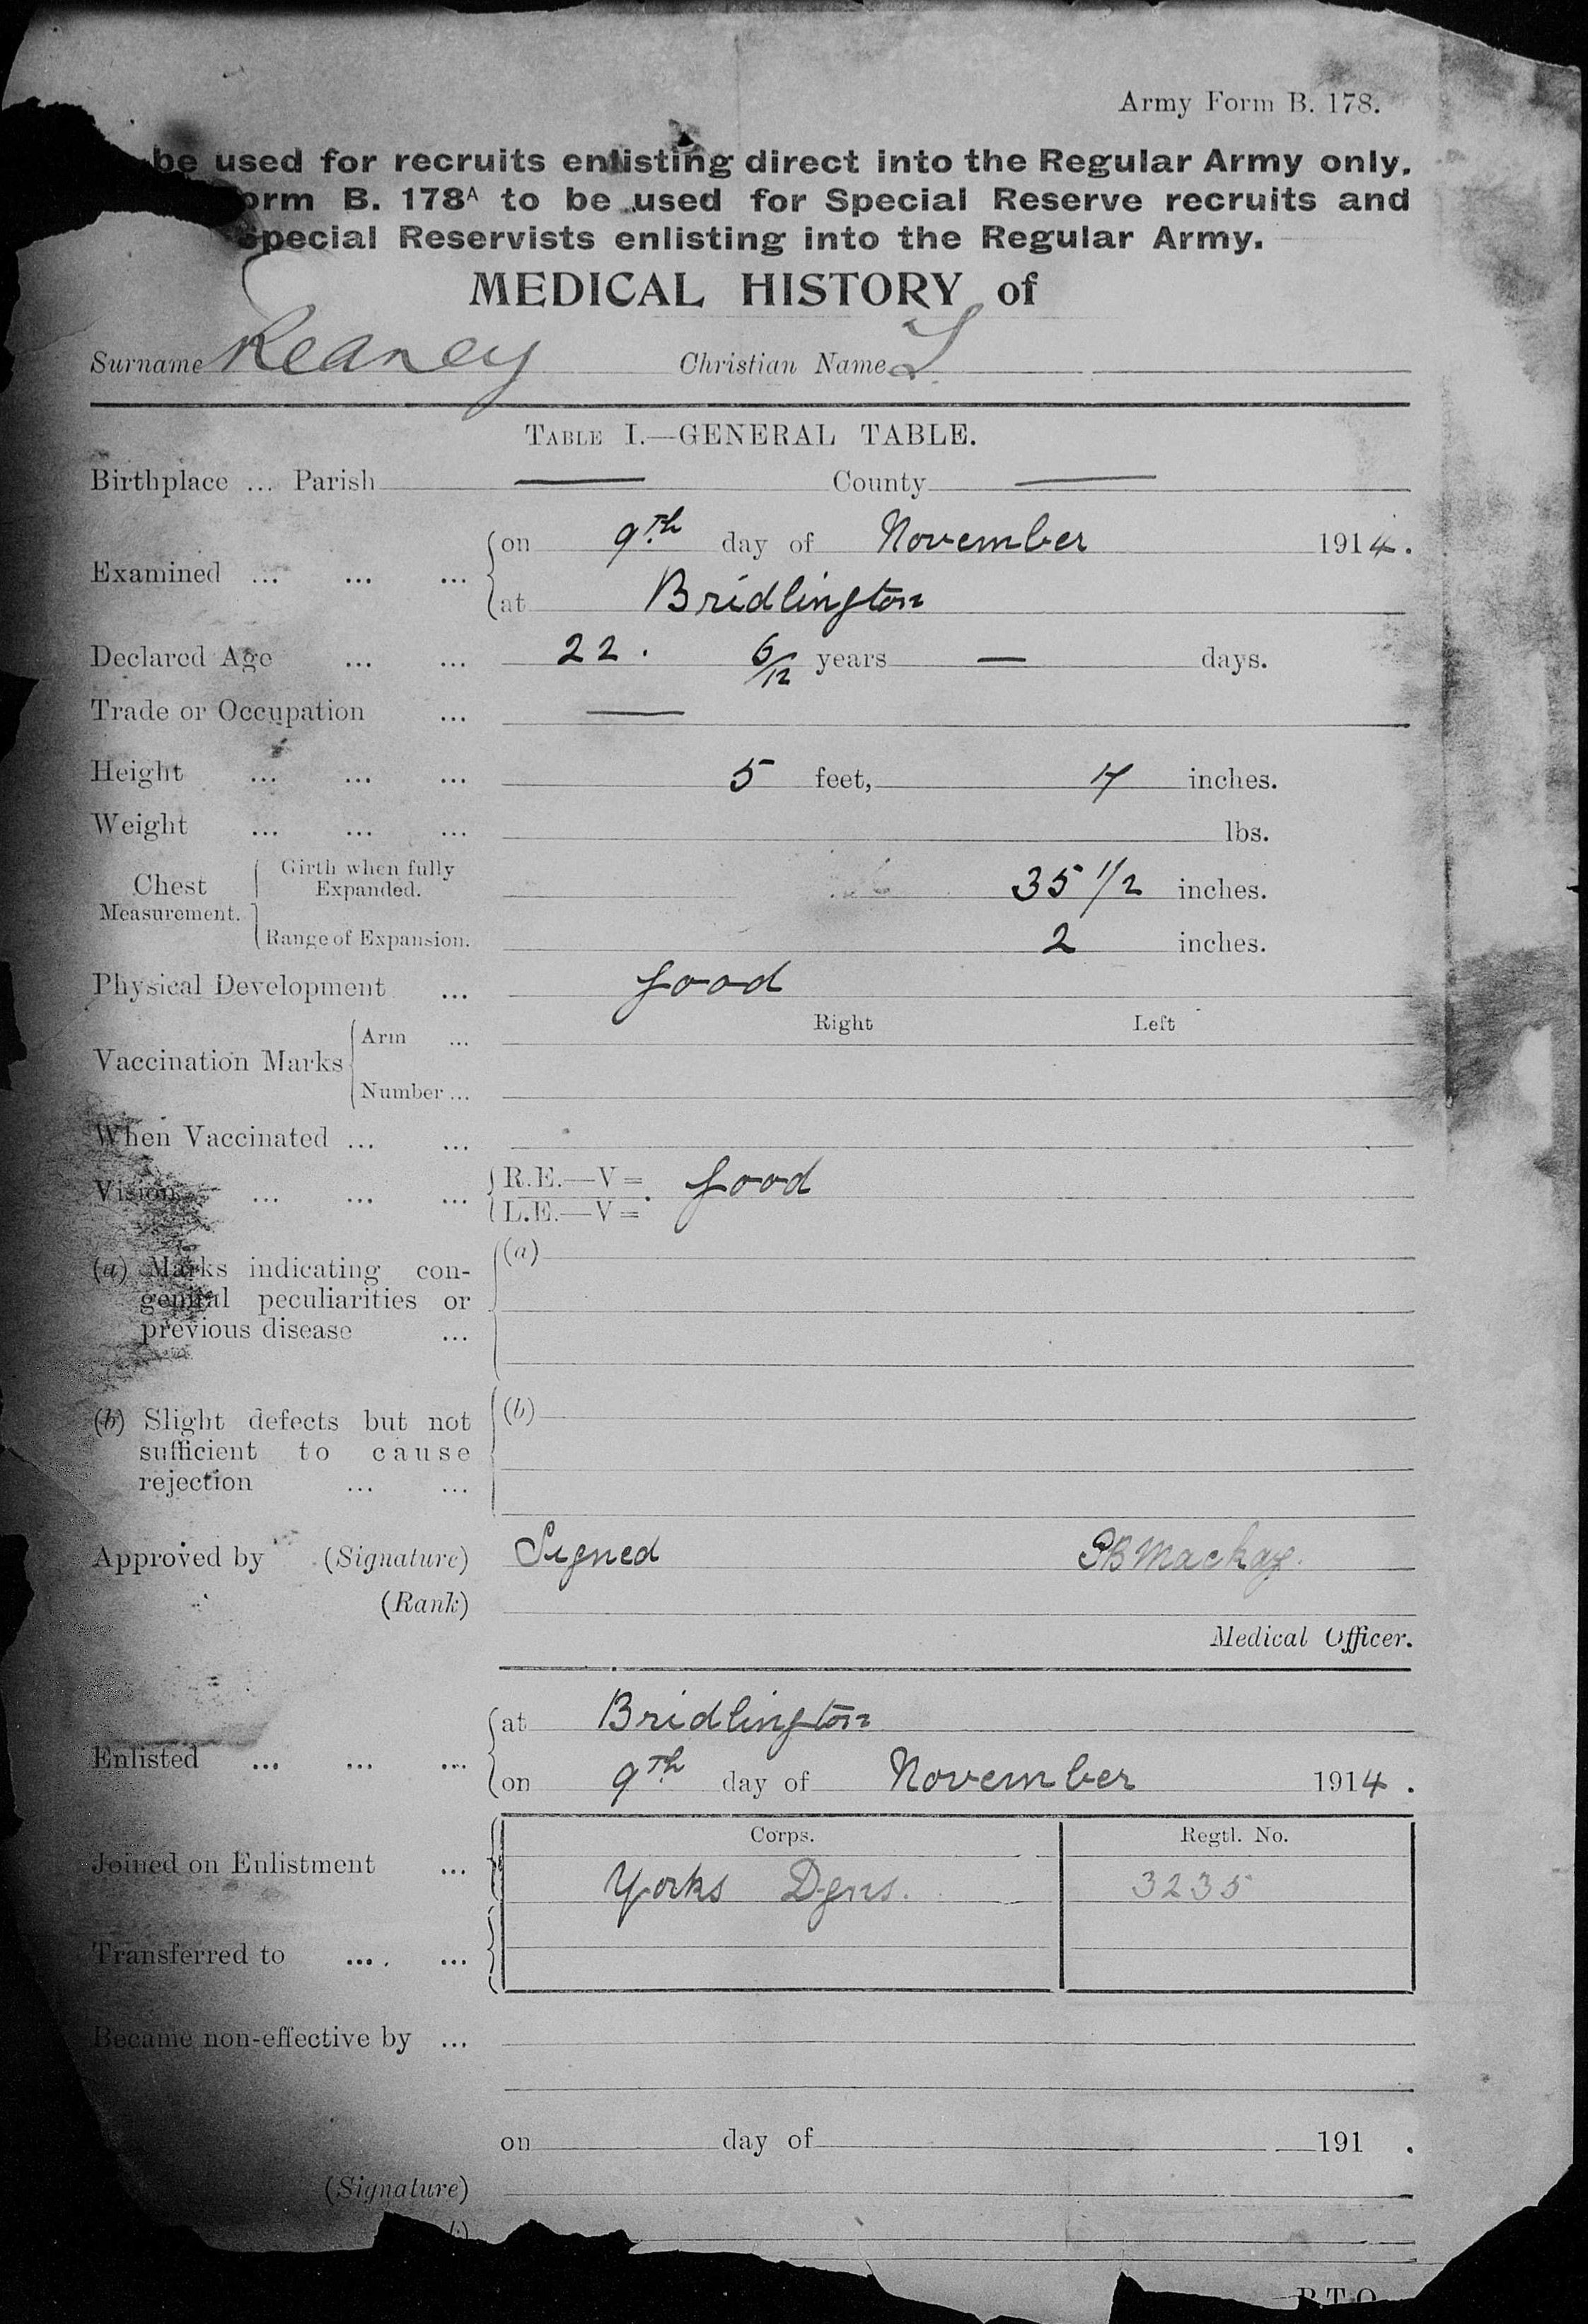 Army Form B. 178.
be used for recruits enlisting direct into the Regular Army only.
orm B. 178A to be used for Special Reserve recruits and
Special Reservists enlisting into the Regular Army.
MEDICAL HISTORY of
Surname Reaney Christian Name
TABLE I.—GENERAL TABLE.
Birthplace ... Parish — County —
on 9th day of November 1914.
Examined ... ... ...
at Bridlington
Declared Age ... ... 22. 6/12 years — days.
Trade or Occupation ... —
Height ... ... ... 5 feet, 7 inches.
Weight ... ... ... lbs.
Chest Measurement. Girth when fully Expanded. 35 1/2 inches.
Range of Expansion. 2 inches.
Physical Development ... good
Right Left
Vaccination Marks Arm ...
Number ...
When Vaccinated ... ...
Vision ... ... ... R.E.—V = good
L.E.—V =
(a) Marks indicating con- (a)
genital peculiarities or
previous disease ...
(b) Slight defects but not (b)
sufficient to cause
rejection ... ...
Approved by (Signature) Signed PB Mackay.
(Rank)
Medical Officer.
at Bridlington
Enlisted ... ... ...
on 9th day of November 1914.
Corps. Regtl. No.
Joined on Enlistment ... Yorks Dgns. 3235
Transferred to .... ...
Became non-effective by ...
on day of 191 .
(Signature)
P.T.O.